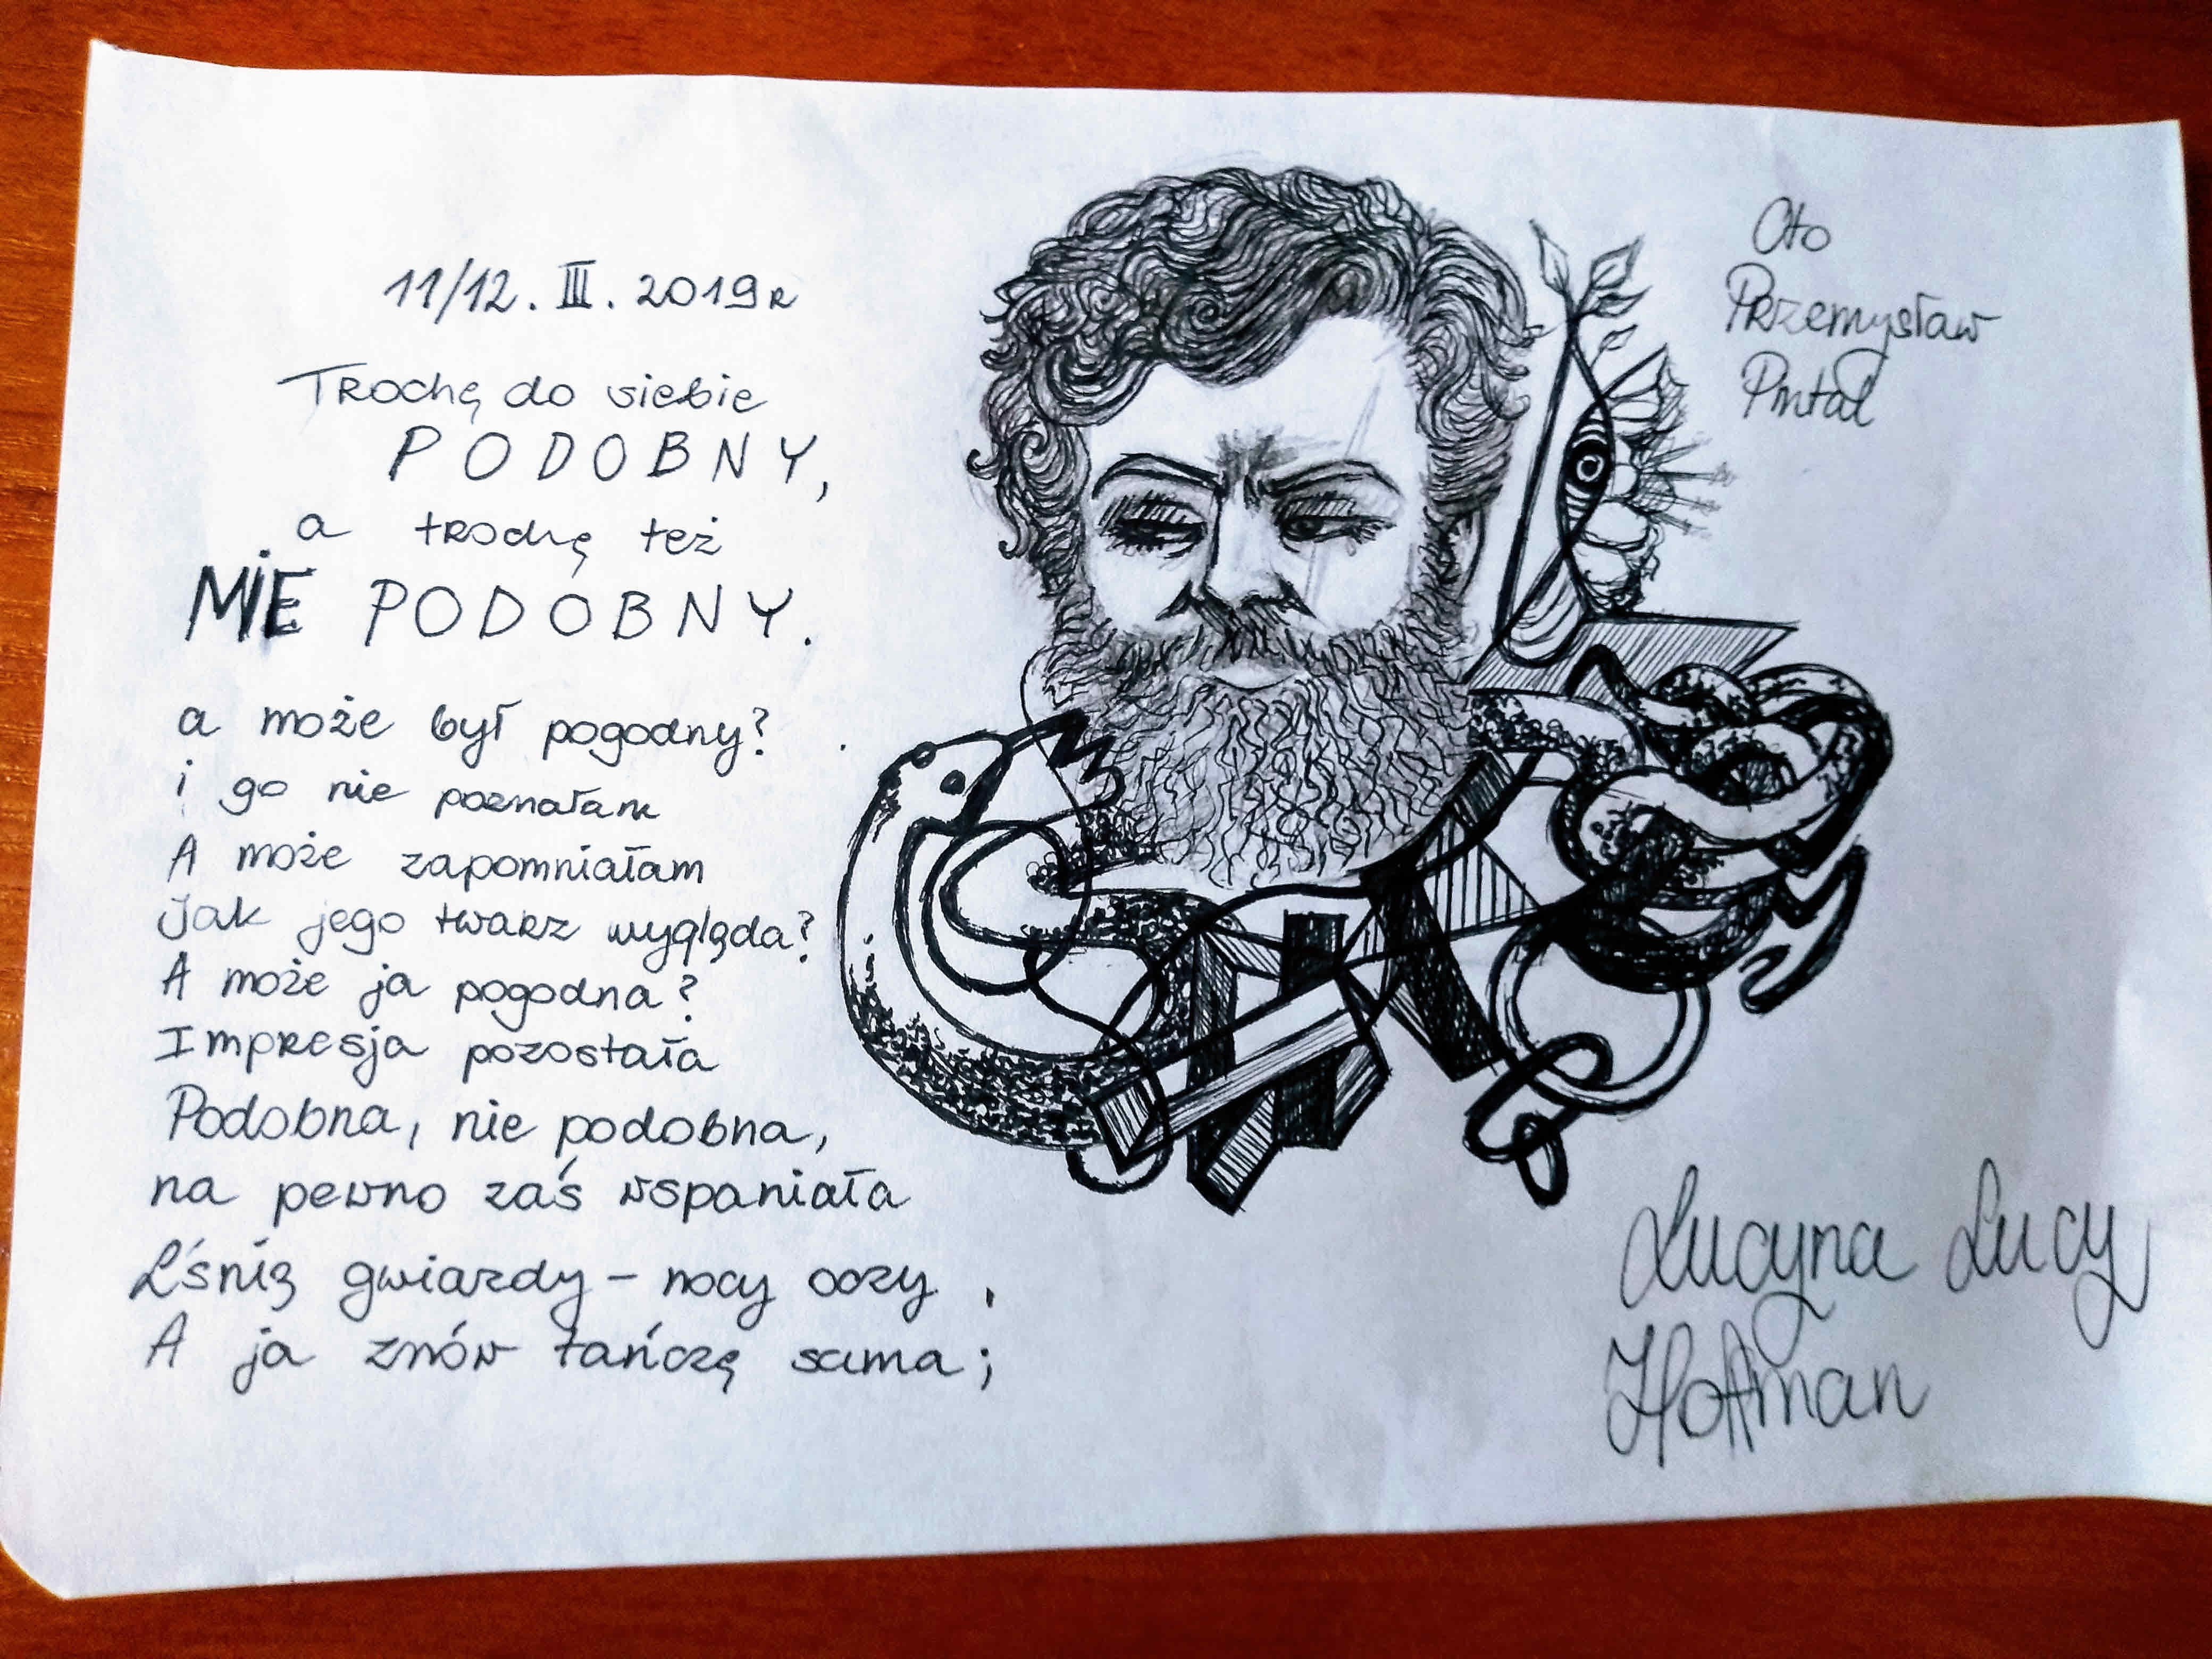 11/12.III.2019r
Trochę do siebie
PODOBNY,
a trochę też
NIE PODOBNY.
a może był pogodny?
i go nie poznałam
A może zapomniałam
Jak jego twarz wygląda?
A może ja pogodna?
Impresja pozostała
Podobna, nie podobna,
na pewno zaś wspaniała
Lśnią gwiazdy - nocy oczy,
A ja znów tańczę sama;
Oto
Przemysław
Pintal
Lucyna Lucy
Hoffman